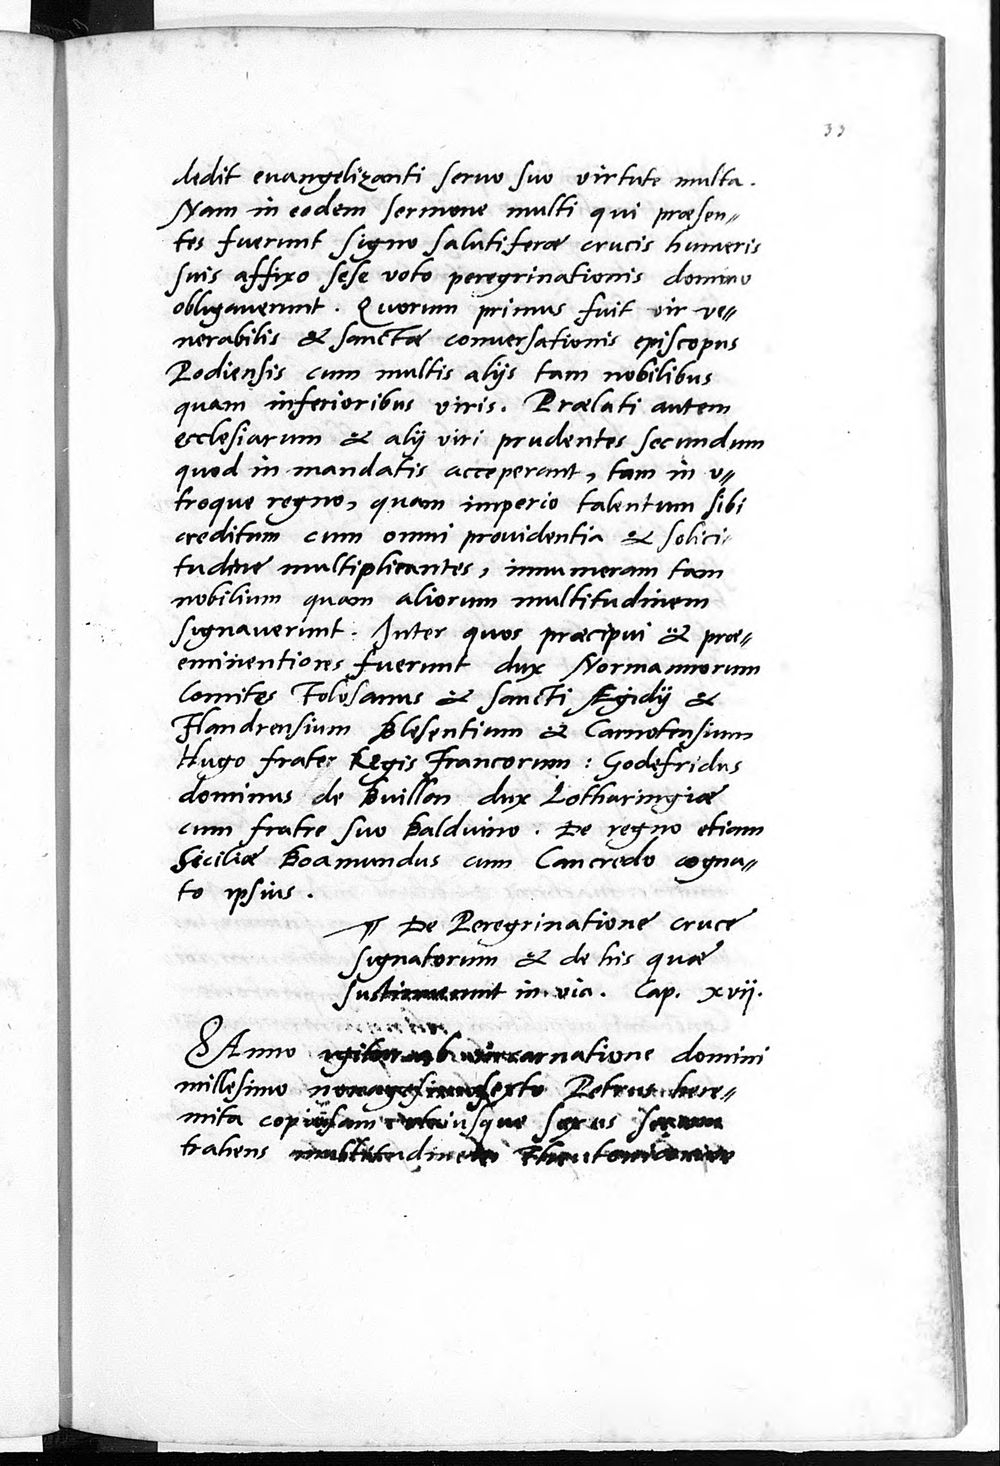 33
dedit euangelizanti seruo suo virtute multa.
Nam in eodem sermone multi qui præsen〃
tes fuerunt signo salutiferæ crucis humeris
suis affixo sese voto peregrinationis domino
obligauerunt. Quorum primus fuit vir ve〃
nerabilis & sanctæ conuersationis episcopus
Podiensis cum multis alijs tam nobilibus
quam inferioribus viris. Prælati autem
ecclesiarum & alij viri prudentes secundum
quod in mandatis acceperant, tam in v〃
troque regno, quam imperio talentum sibi
creditum cum omni prouidentia & solici〃
tudine multiplicantes, innumeram tam
nobilium quam aliorum multitudinem
signauerunt. Inter quos præcipui & præ〃
eminentiores fuerunt dux Normannorum
Comites Tolosanus & sancti Ægidij &
Flandrensium Blesentium & Carnotensium
Hugo frater Regis Francorum: Godefridus
dominus de Buillon dux Lotharingiæ
cum fratre suo Balduino. De regno etiam
Siciliæ Boamundus cum Tancredo cogna〃
to ipsius.
¶ De Peregrinatione cruce
signatorum & de his quæ
sustinuerunt in via. Cap. xvij.
Anno igitur ab incarnatione domini
millesimo nonagesimo sexto Petrus here〃
mita copiosam utriusque sexus secum
trahens multitudinem Theutonicorum